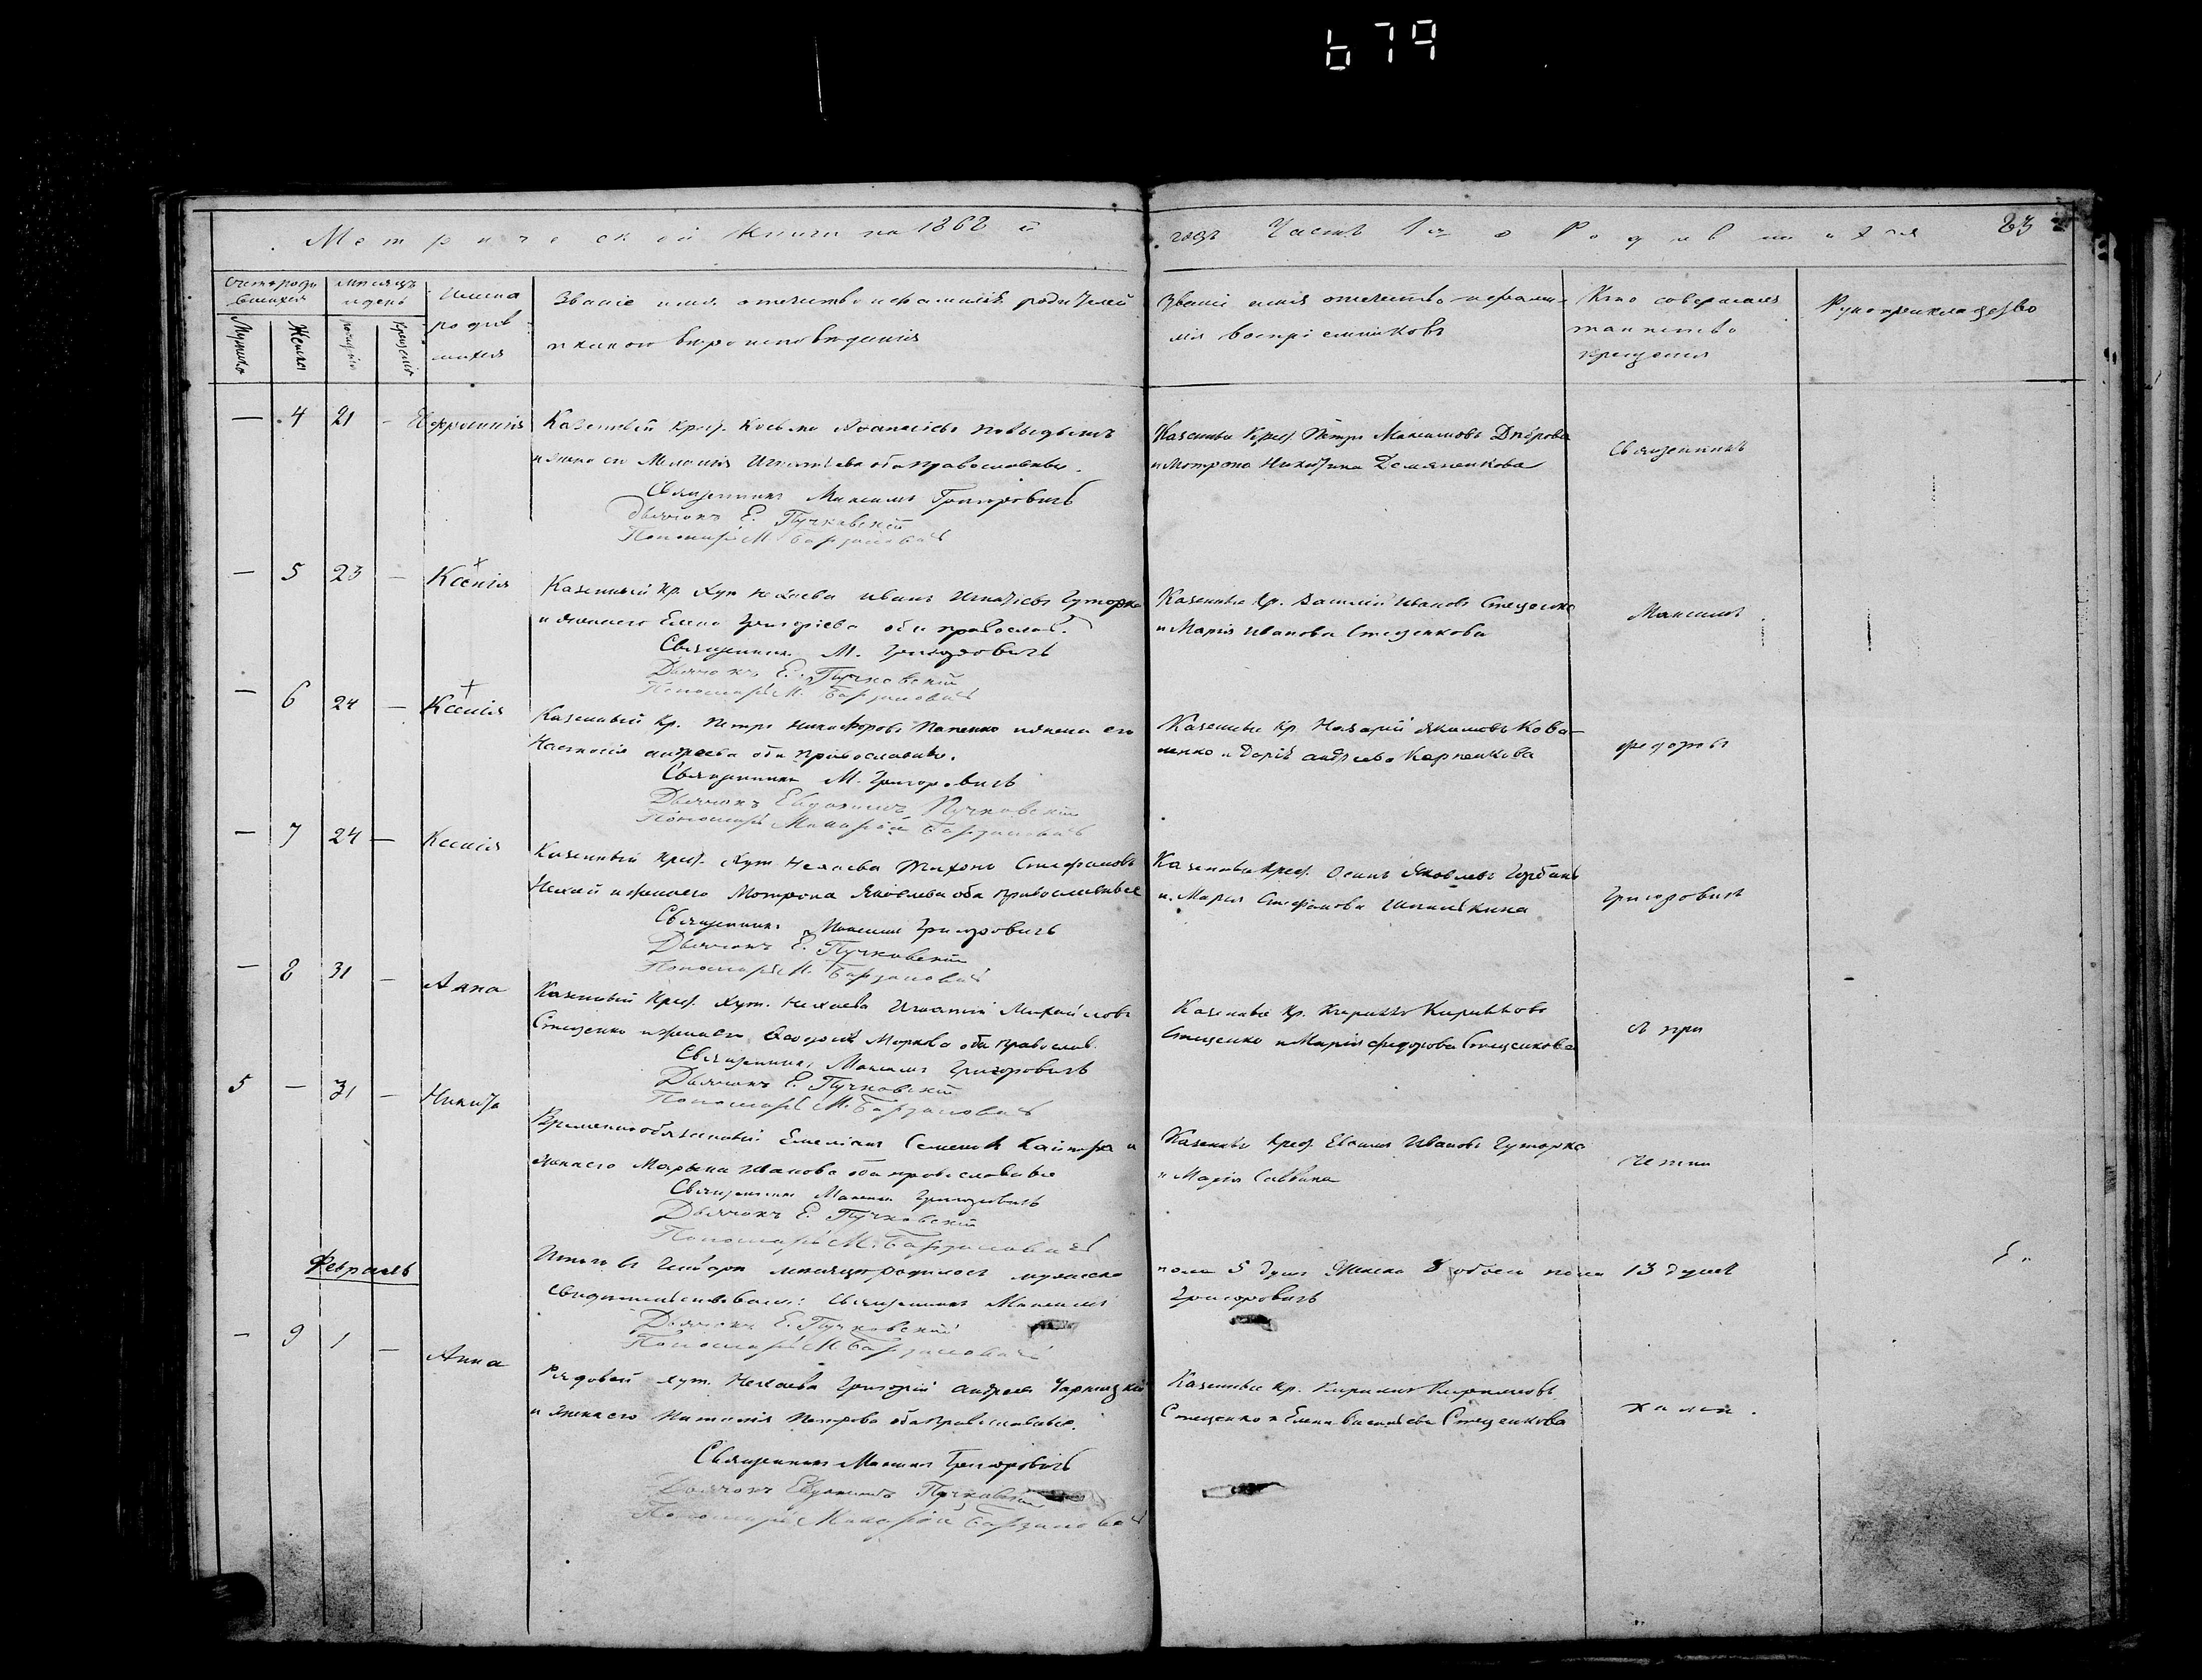 679
Метрической Книги на 1862 й
годъ Часть 1я о Родившихся 23
Счетъ родившихся
Мѣсяцъ и день
Имена родившихся
Званіе имя отчество и фамилія родителей
и какого вѣроисповѣданія
Званіе имя отчество и фамилія воспріемниковъ
Кто совершалъ таинство крещенія
Рукоприкладство
Мужска
Женска
рожденія
крещенія
— 4 21 - Евфросинія
Казенный Крест.
и жена его Меланія оба православные.
Священникъ Максимъ Григоровичъ
Дьячокъ Е. Пучковскій
Пономарь М.
Казенные Крест. Петръ Максимовъ
и Мотрона Никитина
Священникъ
— 5 23 — Ксенія
Казенный кр. Хут Нехаева Иванъ Игнатіевъ Гуторка
и жена его Елена Григоріева оба православ.
Священникъ М. Григоровичъ
Дьячокъ Е. Пучковскій
Пономарь М.
Казенные Кр. Василій Ивановъ Стеценко
и Марія Иванова Стеценкова
Максимъ
— 6 24 — Ксенія
Казенный Кр. Петръ Никифоровъ и жена его
Настасія андреева оба православные.
Священникъ М. Григоровичъ
Дьячокъ Евдокимъ Пучковскій
Пономарь Макарій
Казенные Кр Назарій Якимовъ Кова-
ленко и Дарія андреева Карпенкова
федоровъ
— 7 24 — Ксенія
Казенный Крест. Хут. Нехаева Тихонъ Стефановъ
Нехай и жена его Мотрона Яковлева оба православные
Священникъ Максимъ Григоровичъ
Дьячокъ Е. Пучковскій
Пономарь М.
Казенные Крест. Осипъ Яковлевъ
и Марія Стефанова
Григоровичъ
— 8 31 — Анна
Казенный Крест. Хут. Нехаева Игнатій Михайловъ
Стеценко и жена его Феодосія Маркова оба православ.
Священникъ Максимъ Григоровичъ
Дьячокъ Е. Пучковскій
Пономарь М.
Казенные Кр. Кириллъ Кирилловъ
Стеценко и Марія федорова Стеценкова
съ при
5 — 31 — Никита
Временнообязанный Емеліанъ Семеновъ
жена его Марьяна Иванова оба православные
Священникъ Максимъ Григоровичъ
Дьячокъ Е. Пучковскій
Пономарь М.
Казенные Крест. Ивановъ Гуторка
и Марія Саввина
четни
Февраль
Итого въ Генваре мѣсяце родилось мужеска
пола 5 душъ Женска 8 обоего пола 13 душъ
свидетельствовали: Священникъ Максимъ
Григоровичъ
Дьячокъ Е. Пучковскій
Пономарь М
— 9 1 — Анна
Рядовой хут. Нехаева Григорій андреевъ
и жена его Наталія Петрова оба православные.
Священникъ Максимъ Григоровичъ
Дьячокъ Евдокимъ Пучковскій
Пономарь Макарій
Казенные Кр. Кириллъ Кирилловъ
Стеценко и Елена Васильева Стеценкова
ками.